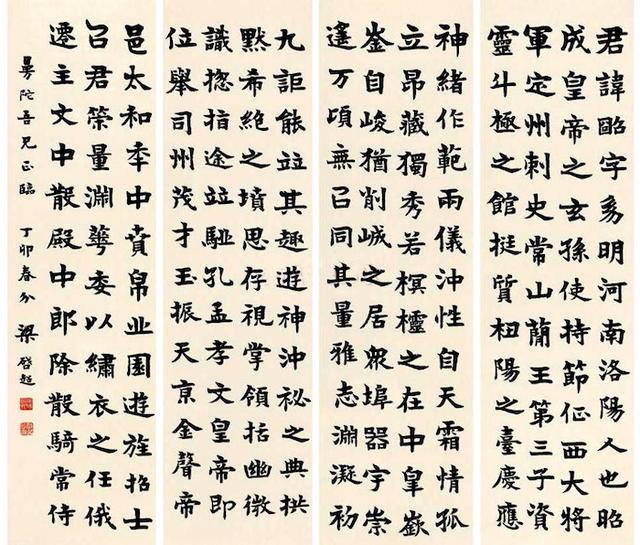 君諱昭字幼明河南洛陽人也昭
成皇帝之玄孫使持節征西大將
軍定州刺史常山蕳王第三子資
靈斗極之館挺質杻陽之臺慶應
神緒作範兩儀沖性自天霜情孤
立昂藏獨秀若榠櫨之在中皇嶽
崟自峻猶削峸之居衆埠器宇崇
邃万頃無㠯同其量雅志淵凝初
九詎能竝其趣遊神沖祕之典拱
默希絕之墳思存視掌領括幽微
識揔指途竝驅孔孟孝文皇帝即
位舉司州茂才玉振天京金聲帝
邑太和年中賁帛丘園遊旌招士
㠯君榮量淵華委以繡衣之任俄
遷主文中散殿中郎除散騎常侍
曼陀吾兄正臨 丁卯春分 梁啓超